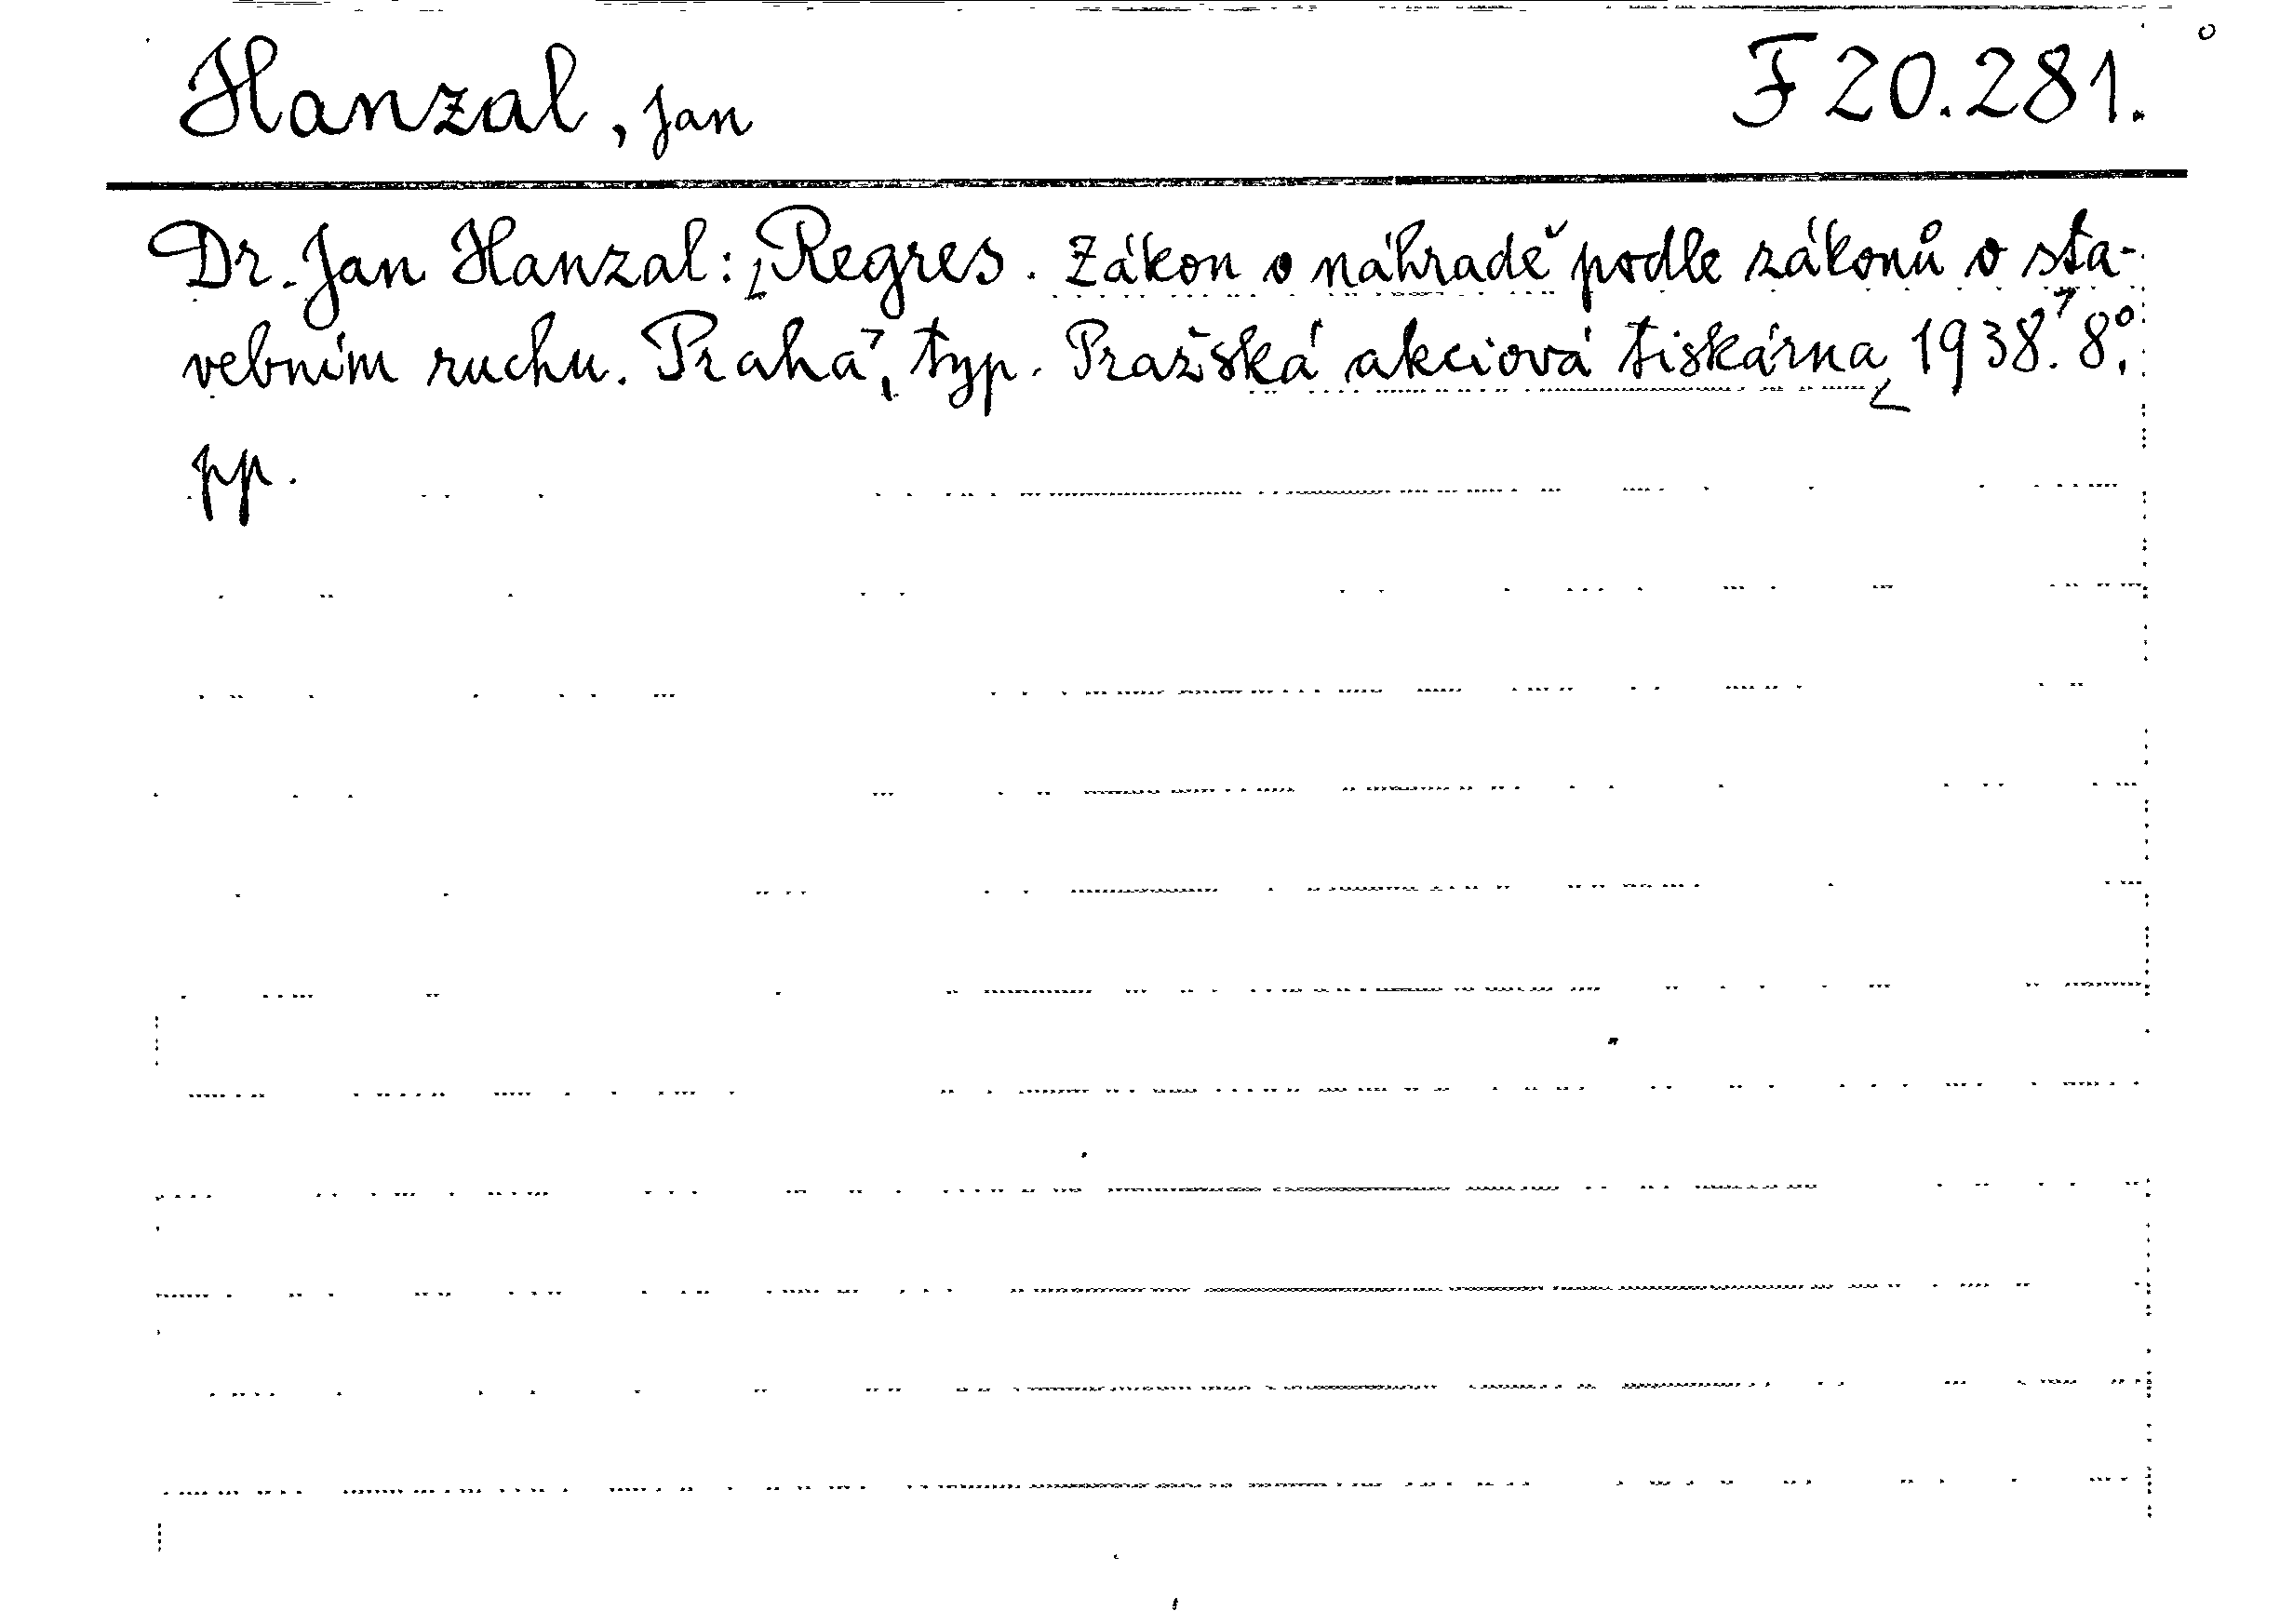 Hanzal, Jan
F 20.281.
Dr. Jan Hanzal: Regres. Zákon o náhradě podle zákonů o sta-
vebním ruchu. Praha, typ. Pražská akciová tiskárna 1938. 8°.
pp.